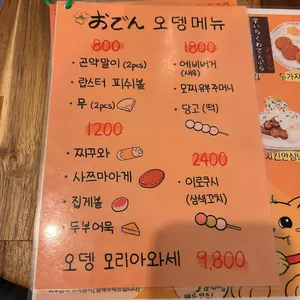 おでん 오뎅메뉴
800
· 곤약말이 (2pcs)
· 랍스터 피쉬볼
· 무 (2pcs)
1200
· 찌꾸와
· 사쯔마아게
· 집게볼
· 두부어묵
1800
· 에비버거
(새우)
· 모찌유부주머니
· 당고 (떡)
2400
· 이로쿠시
(삼색꼬치)
오뎅 모리아와세 9,800